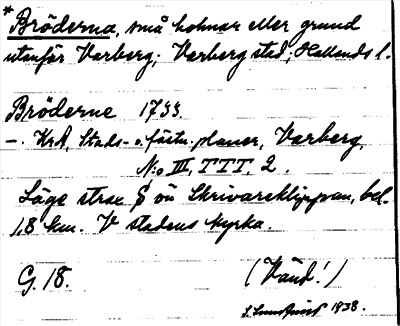 *
Bröderna, små holmar eller grund
utanför Varberg, Varberg stad, Hallands l.
Bröderne 1733
–. KrA, Stads- o. fästn. planer, Varberg,
N:o III, TTT. 2.
Läge strax S ön Skrivareklippan, bel.
1,8 km. V stadens kyrka.
G. 18. (Vänd!)
S. Lundquist 1938.